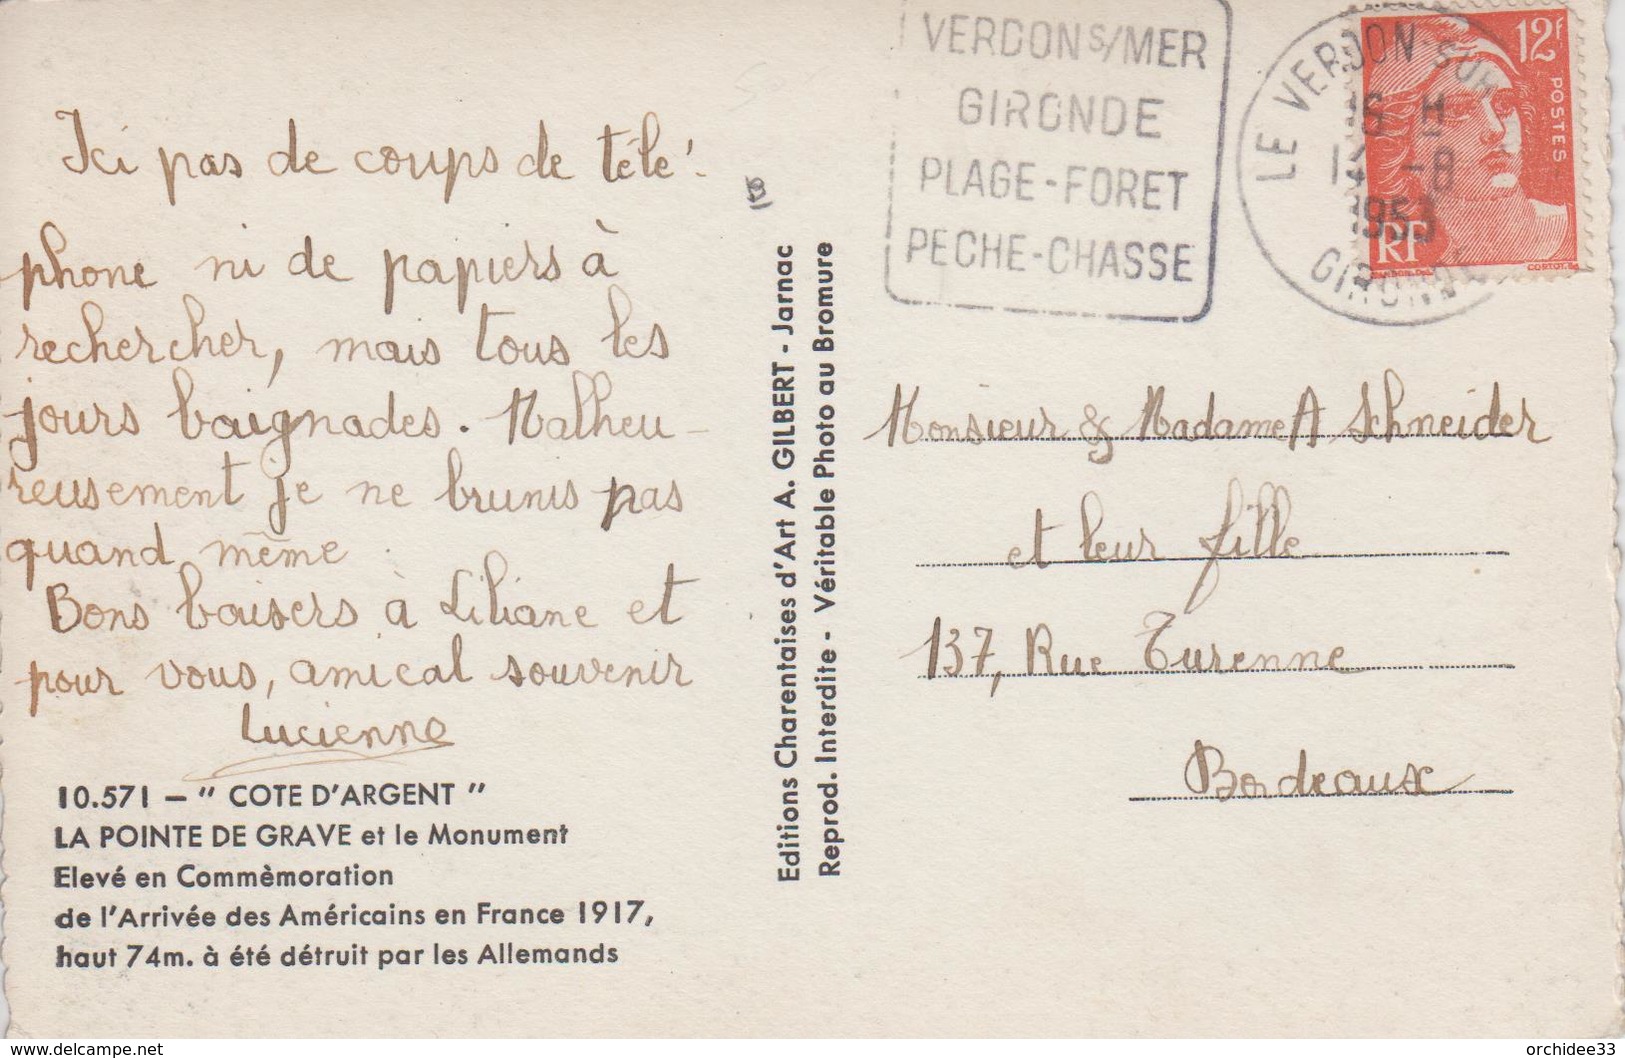 Ici pas de coups de télé-
phone ni de papiers à
rechercher, mais tous les
jours baignades. Malheu-
reusement je ne brunis pas
quand même
Bons baisers à Liliane et
pour vous, amical souvenir
Lucienne
10.571 – " COTE D'ARGENT "
LA POINTE DE GRAVE et le Monument
Elevé en Commèmoration
de l'Arrivée des Américains en France 1917,
haut 74m. à été détruit par les Allemands
Editions Charentaises d'Art A. GILBERT - Jarnac
Reprod. Interdite - Véritable Photo au Bromure
VERDON S/MER
GIRONDE
PLAGE-FORET
PECHE-CHASSE
LE VERDON-SUR
16 H
-8
1953
GIRONDE
12f
POSTES
RF
CORTOT
Monsieur & Madame A Schneider
et leur fille
137, Rue Turenne
Bordeaux
www.delcampe.net
orchidee33